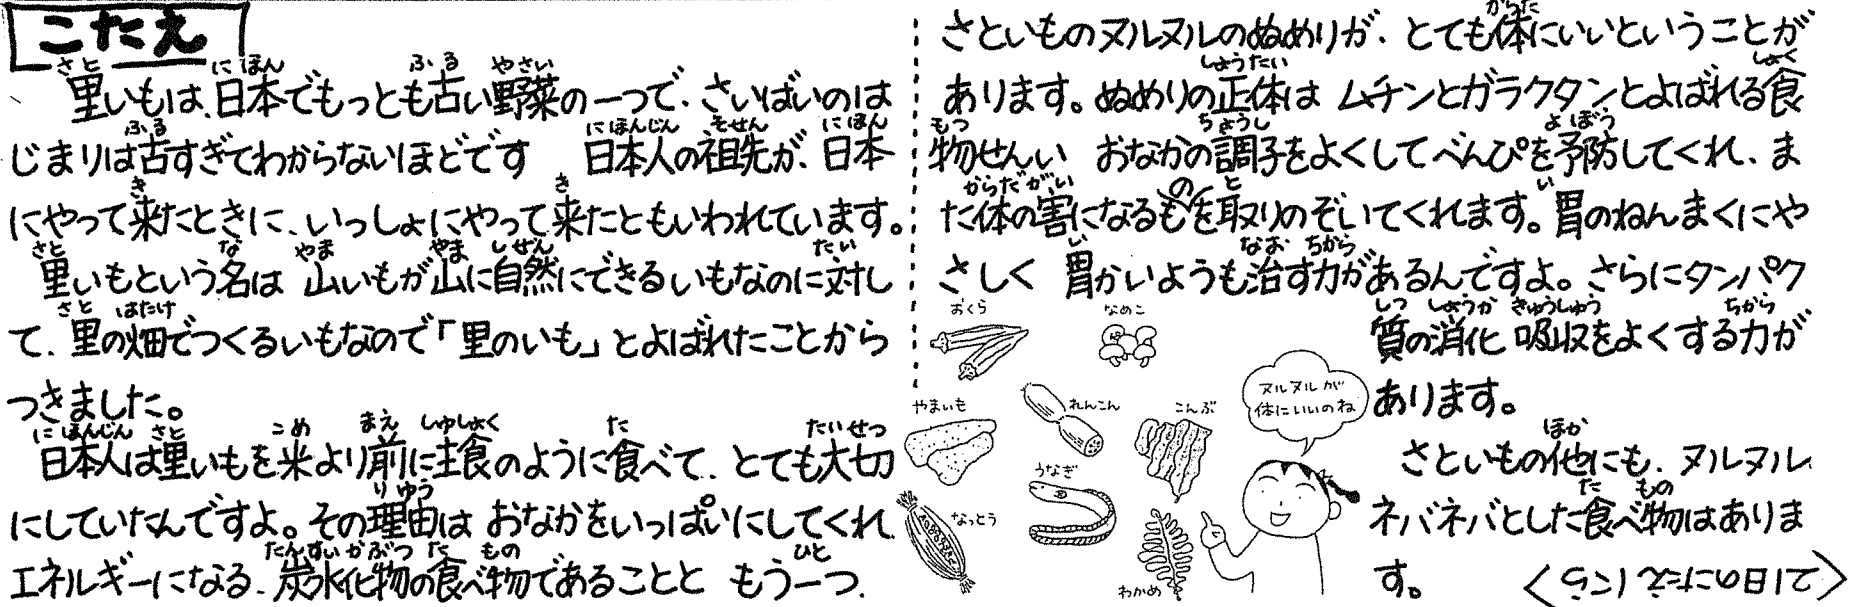 こたえ
里いもは、日本でもっとも古い野菜の一つで、さいばいのは
じまりは古すぎてわからないほどです 日本人の祖先が、日本
にやって来たときに、いっしょにやって来たともいわれています。
里いもという名は 山いもが山に自然にできるいもなのに対し
て、里の畑でつくるいもなので「里のいも」とよばれたことから
つきました。
日本人は里いもを米より前に主食のように食べて、とても大切
にしていたんですよ。その理由は おなかをいっぱいにしてくれ
エネルギーになる、炭水化物の食べ物であることと もう一つ、
さといものヌルヌルのぬめりが、とても体にいいということが
あります。ぬめりの正体は ムチンとガラクタンとよばれる食
物せんい おなかの調子をよくしてべんぴを予防してくれ、ま
た体の害になるものを取りのぞいてくれます。胃のねんまくにや
さしく 胃かいようも治す力があるんですよ。さらにタンパク
質の消化 吸収をよくする力が
あります。
さといもの他にも、ヌルヌル
ネバネバとした食べ物はありま
す。
おくら
なめこ
やまいも
れんこん
こんぶ
うなぎ
なっとう
わかめ
ヌルヌルが
体にいいのね